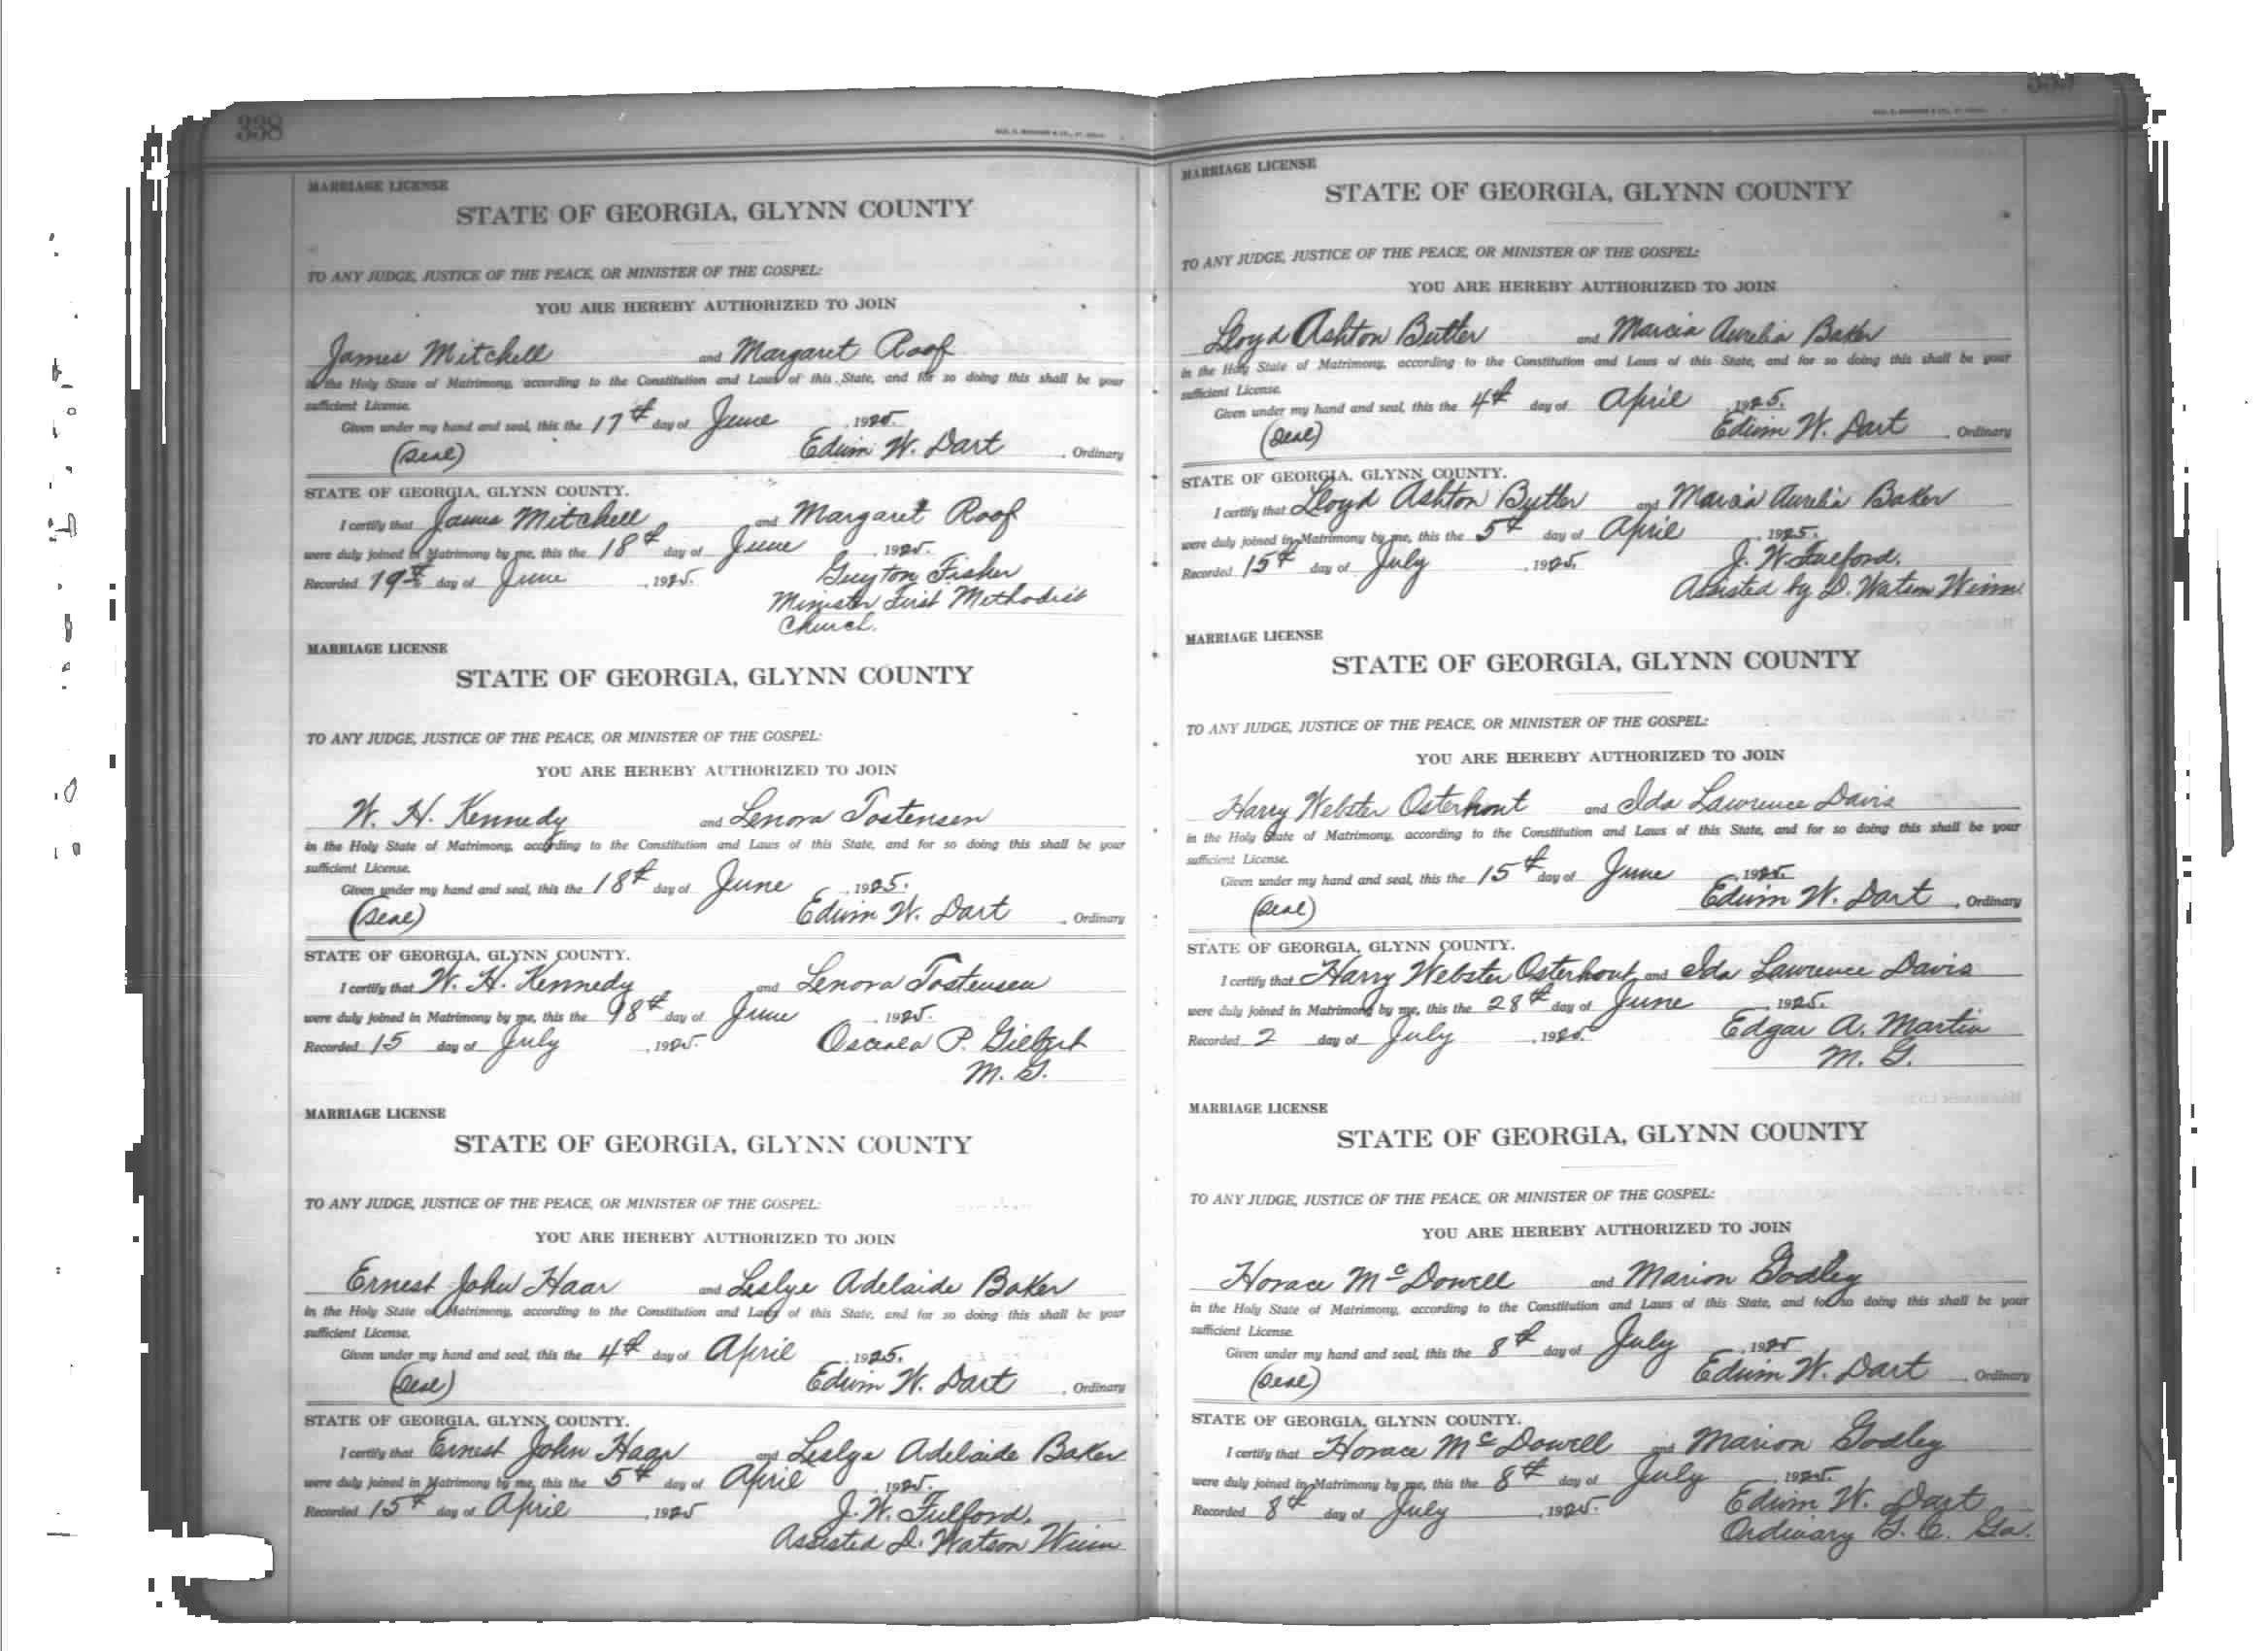 338
MARRIAGE LICENSE
STATE OF GEORGIA, GLYNN COUNTY
TO ANY JUDGE, JUSTICE OF THE PEACE, OR MINISTER OF THE GOSPEL:
YOU ARE HEREBY AUTHORIZED TO JOIN
James Mitchell and Margaret Roof
in the Holy State of Matrimony, according to the Constitution and Laws of this State, and for so doing this shall be your
sufficient License.
Given under my hand and seal, this the 17th day of June, 1925.
(Seal) Edwin W. Dart, Ordinary
STATE OF GEORGIA, GLYNN COUNTY.
I certify that James Mitchell and Margaret Roof
were duly joined in Matrimony by me, this the 18th day of June, 1925.
Recorded 19th day of June, 1925. Guyton Fisher
Minister First Methodist
Church.
MARRIAGE LICENSE
STATE OF GEORGIA, GLYNN COUNTY
TO ANY JUDGE, JUSTICE OF THE PEACE, OR MINISTER OF THE GOSPEL:
YOU ARE HEREBY AUTHORIZED TO JOIN
W. H. Kennedy and Lenora Tostensen
in the Holy State of Matrimony, according to the Constitution and Laws of this State, and for so doing this shall be your
sufficient License.
Given under my hand and seal, this the 18th day of June, 1925.
(Seal) Edwin W. Dart, Ordinary
STATE OF GEORGIA, GLYNN COUNTY.
I certify that W. H. Kennedy and Lenora Tostensen
were duly joined in Matrimony by me, this the 18th day of June, 1925.
Recorded 15 day of July, 1925. Osceola P. Gilbert
M. G.
MARRIAGE LICENSE
STATE OF GEORGIA, GLYNN COUNTY
TO ANY JUDGE, JUSTICE OF THE PEACE, OR MINISTER OF THE GOSPEL:
YOU ARE HEREBY AUTHORIZED TO JOIN
Ernest John Haar and Leslye Adelaide Baker
in the Holy State of Matrimony, according to the Constitution and Laws of this State, and for so doing this shall be your
sufficient License.
Given under my hand and seal, this the 4th day of April 1925.
(Seal) Edwin W. Dart, Ordinary
STATE OF GEORGIA, GLYNN COUNTY.
I certify that Ernest John Haar and Leslye Adelaide Baker
were duly joined in Matrimony by me, this the 5th day of April, 1925.
Recorded 15th day of April, 1925 J. W. Fulford.
Assisted D. Watson Winn
MARRIAGE LICENSE
STATE OF GEORGIA, GLYNN COUNTY
TO ANY JUDGE, JUSTICE OF THE PEACE, OR MINISTER OF THE GOSPEL:
YOU ARE HEREBY AUTHORIZED TO JOIN
Lloyd Ashton Butler and Marcia Aurelia Baker
in the Holy State of Matrimony, according to the Constitution and Laws of this State, and for so doing this shall be your
sufficient License.
Given under my hand and seal, this the 4th day of April 1925.
(Seal) Edwin W. Dart, Ordinary
STATE OF GEORGIA, GLYNN COUNTY.
I certify that Lloyd Ashton Butler and Marcia Aurelia Baker
were duly joined in Matrimony by me, this the 5th day of April, 1925.
Recorded 15th day of July, 1925. J. W. Fulford.
Assisted by D. Watson Winn
MARRIAGE LICENSE
STATE OF GEORGIA, GLYNN COUNTY
TO ANY JUDGE, JUSTICE OF THE PEACE, OR MINISTER OF THE GOSPEL:
YOU ARE HEREBY AUTHORIZED TO JOIN
Harry Webster Osterhout and Ida Lawrence Davis
in the Holy State of Matrimony, according to the Constitution and Laws of this State, and for so doing this shall be your
sufficient License.
Given under my hand and seal, this the 15th day of June, 1925.
(Seal) Edwin W. Dart, Ordinary
STATE OF GEORGIA, GLYNN COUNTY.
I certify that Harry Webster Osterhout and Ida Lawrence Davis
were duly joined in Matrimony by me, this the 28th day of June, 1925.
Recorded 2 day of July, 1925. Edgar A. Martin
M. G.
MARRIAGE LICENSE
STATE OF GEORGIA, GLYNN COUNTY
TO ANY JUDGE, JUSTICE OF THE PEACE, OR MINISTER OF THE GOSPEL:
YOU ARE HEREBY AUTHORIZED TO JOIN
Horace McDowell and Marion Godley
in the Holy State of Matrimony, according to the Constitution and Laws of this State, and for so doing this shall be your
sufficient License.
Given under my hand and seal, this the 8th day of July, 1925
(Seal) Edwin W. Dart, Ordinary
STATE OF GEORGIA, GLYNN COUNTY.
I certify that Horace McDowell and Marion Godley
were duly joined in Matrimony by me, this the 8th day of July, 1925.
Recorded 8th day of July, 1925. Edwin W. Dart
Ordinary G. C. Ga.